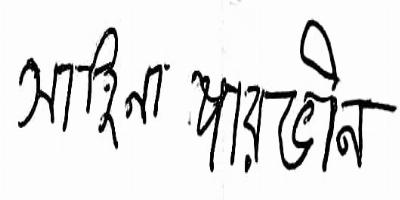 সাহিনা পারভীন